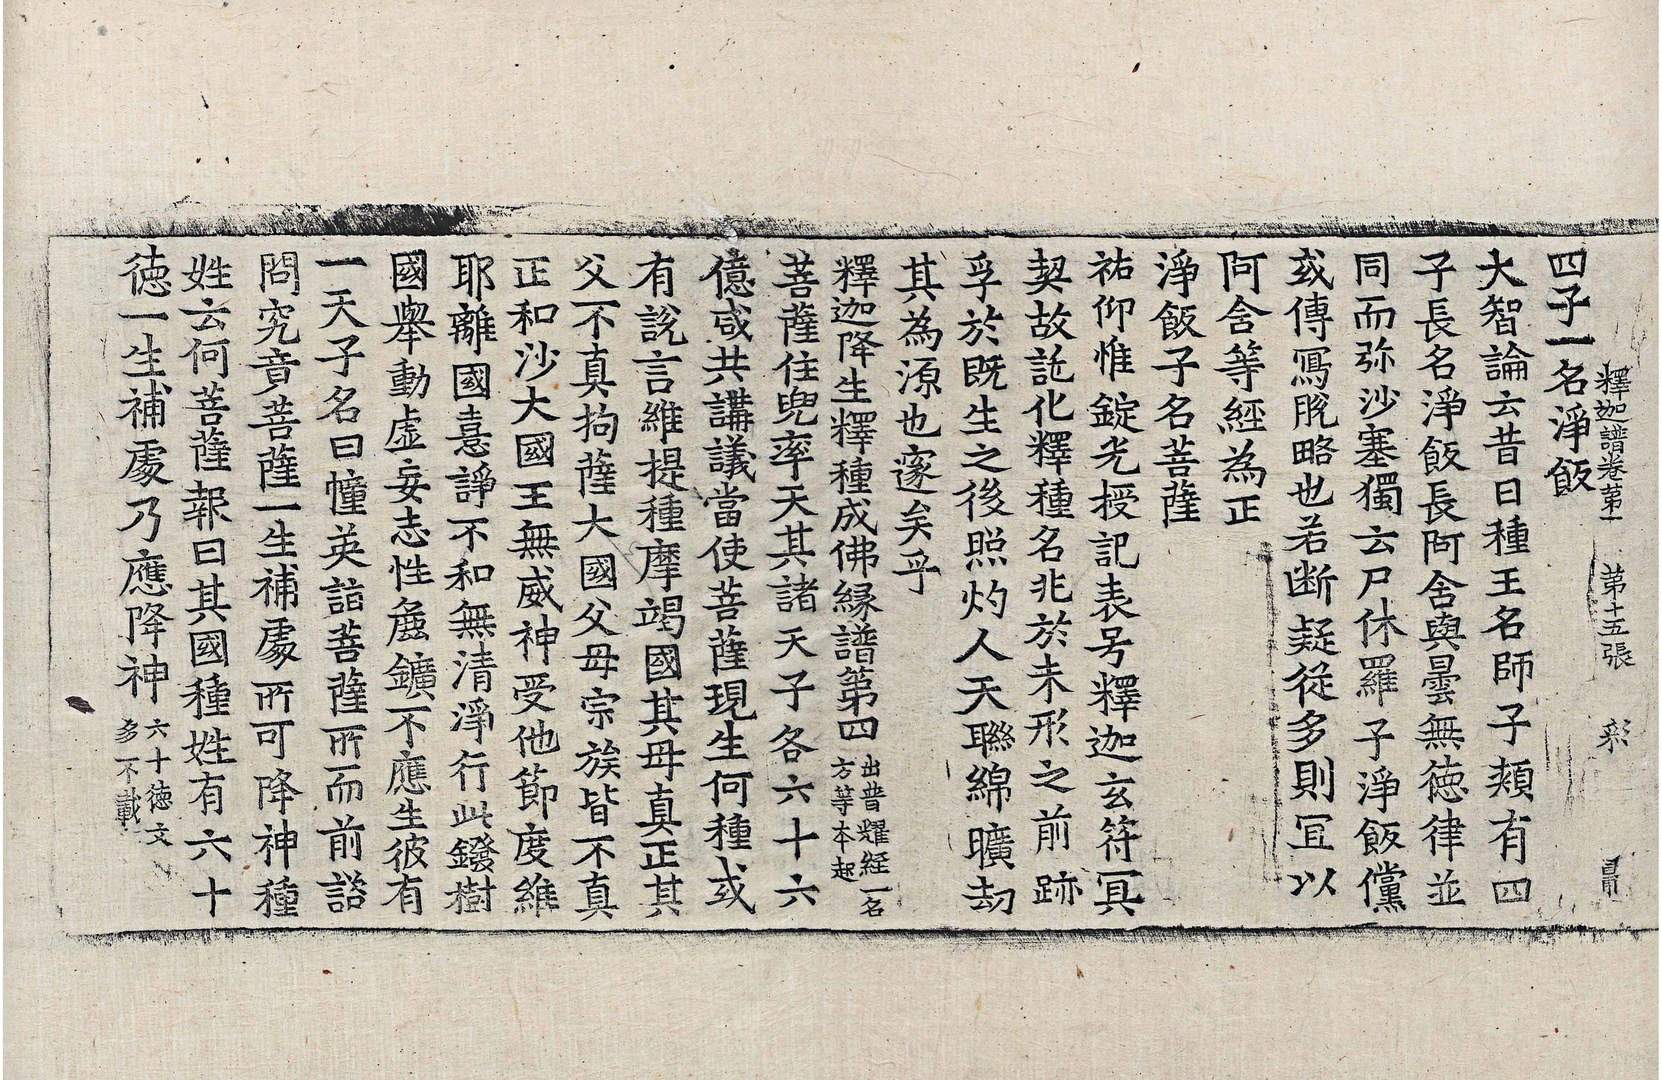 釋迦譜卷第一 第十五張 彩
四子一名淨飯
大智論云昔日種王名師子頰有四
子長名淨飯長阿含與曇無德律並
同而弥沙塞獨云尸休羅子淨飯儻
或傳寫脫略也若断疑從多則冝以
阿含等經為正
淨飯子名菩薩
祐仰惟錠光授記表号釋迦玄符冥
契故託化釋種名兆於未形之前跡
孚於既生之後照灼人天聯綿曠劫
其為源也邃矣乎
釋迦降生釋種成佛縁譜第四 出普耀經一名
方等本起
菩薩住兜率天其諸天子各六十六
億咸共講議當使菩薩現生何種或
有說言維提種摩竭國其母真正其
父不真拘薩大國父母宗族皆不真
正和沙大國王無威神受他節度維
耶離國憙諍不和無清淨行此鏺樹
國舉動虛妄志性麁鑛不應生彼有
一天子名曰幢英詣菩薩所而前諮
問究竟菩薩一生補處所可降神種
姓云何菩薩報曰其國種姓有六十
德一生補處乃應降神 六十德文
多不載